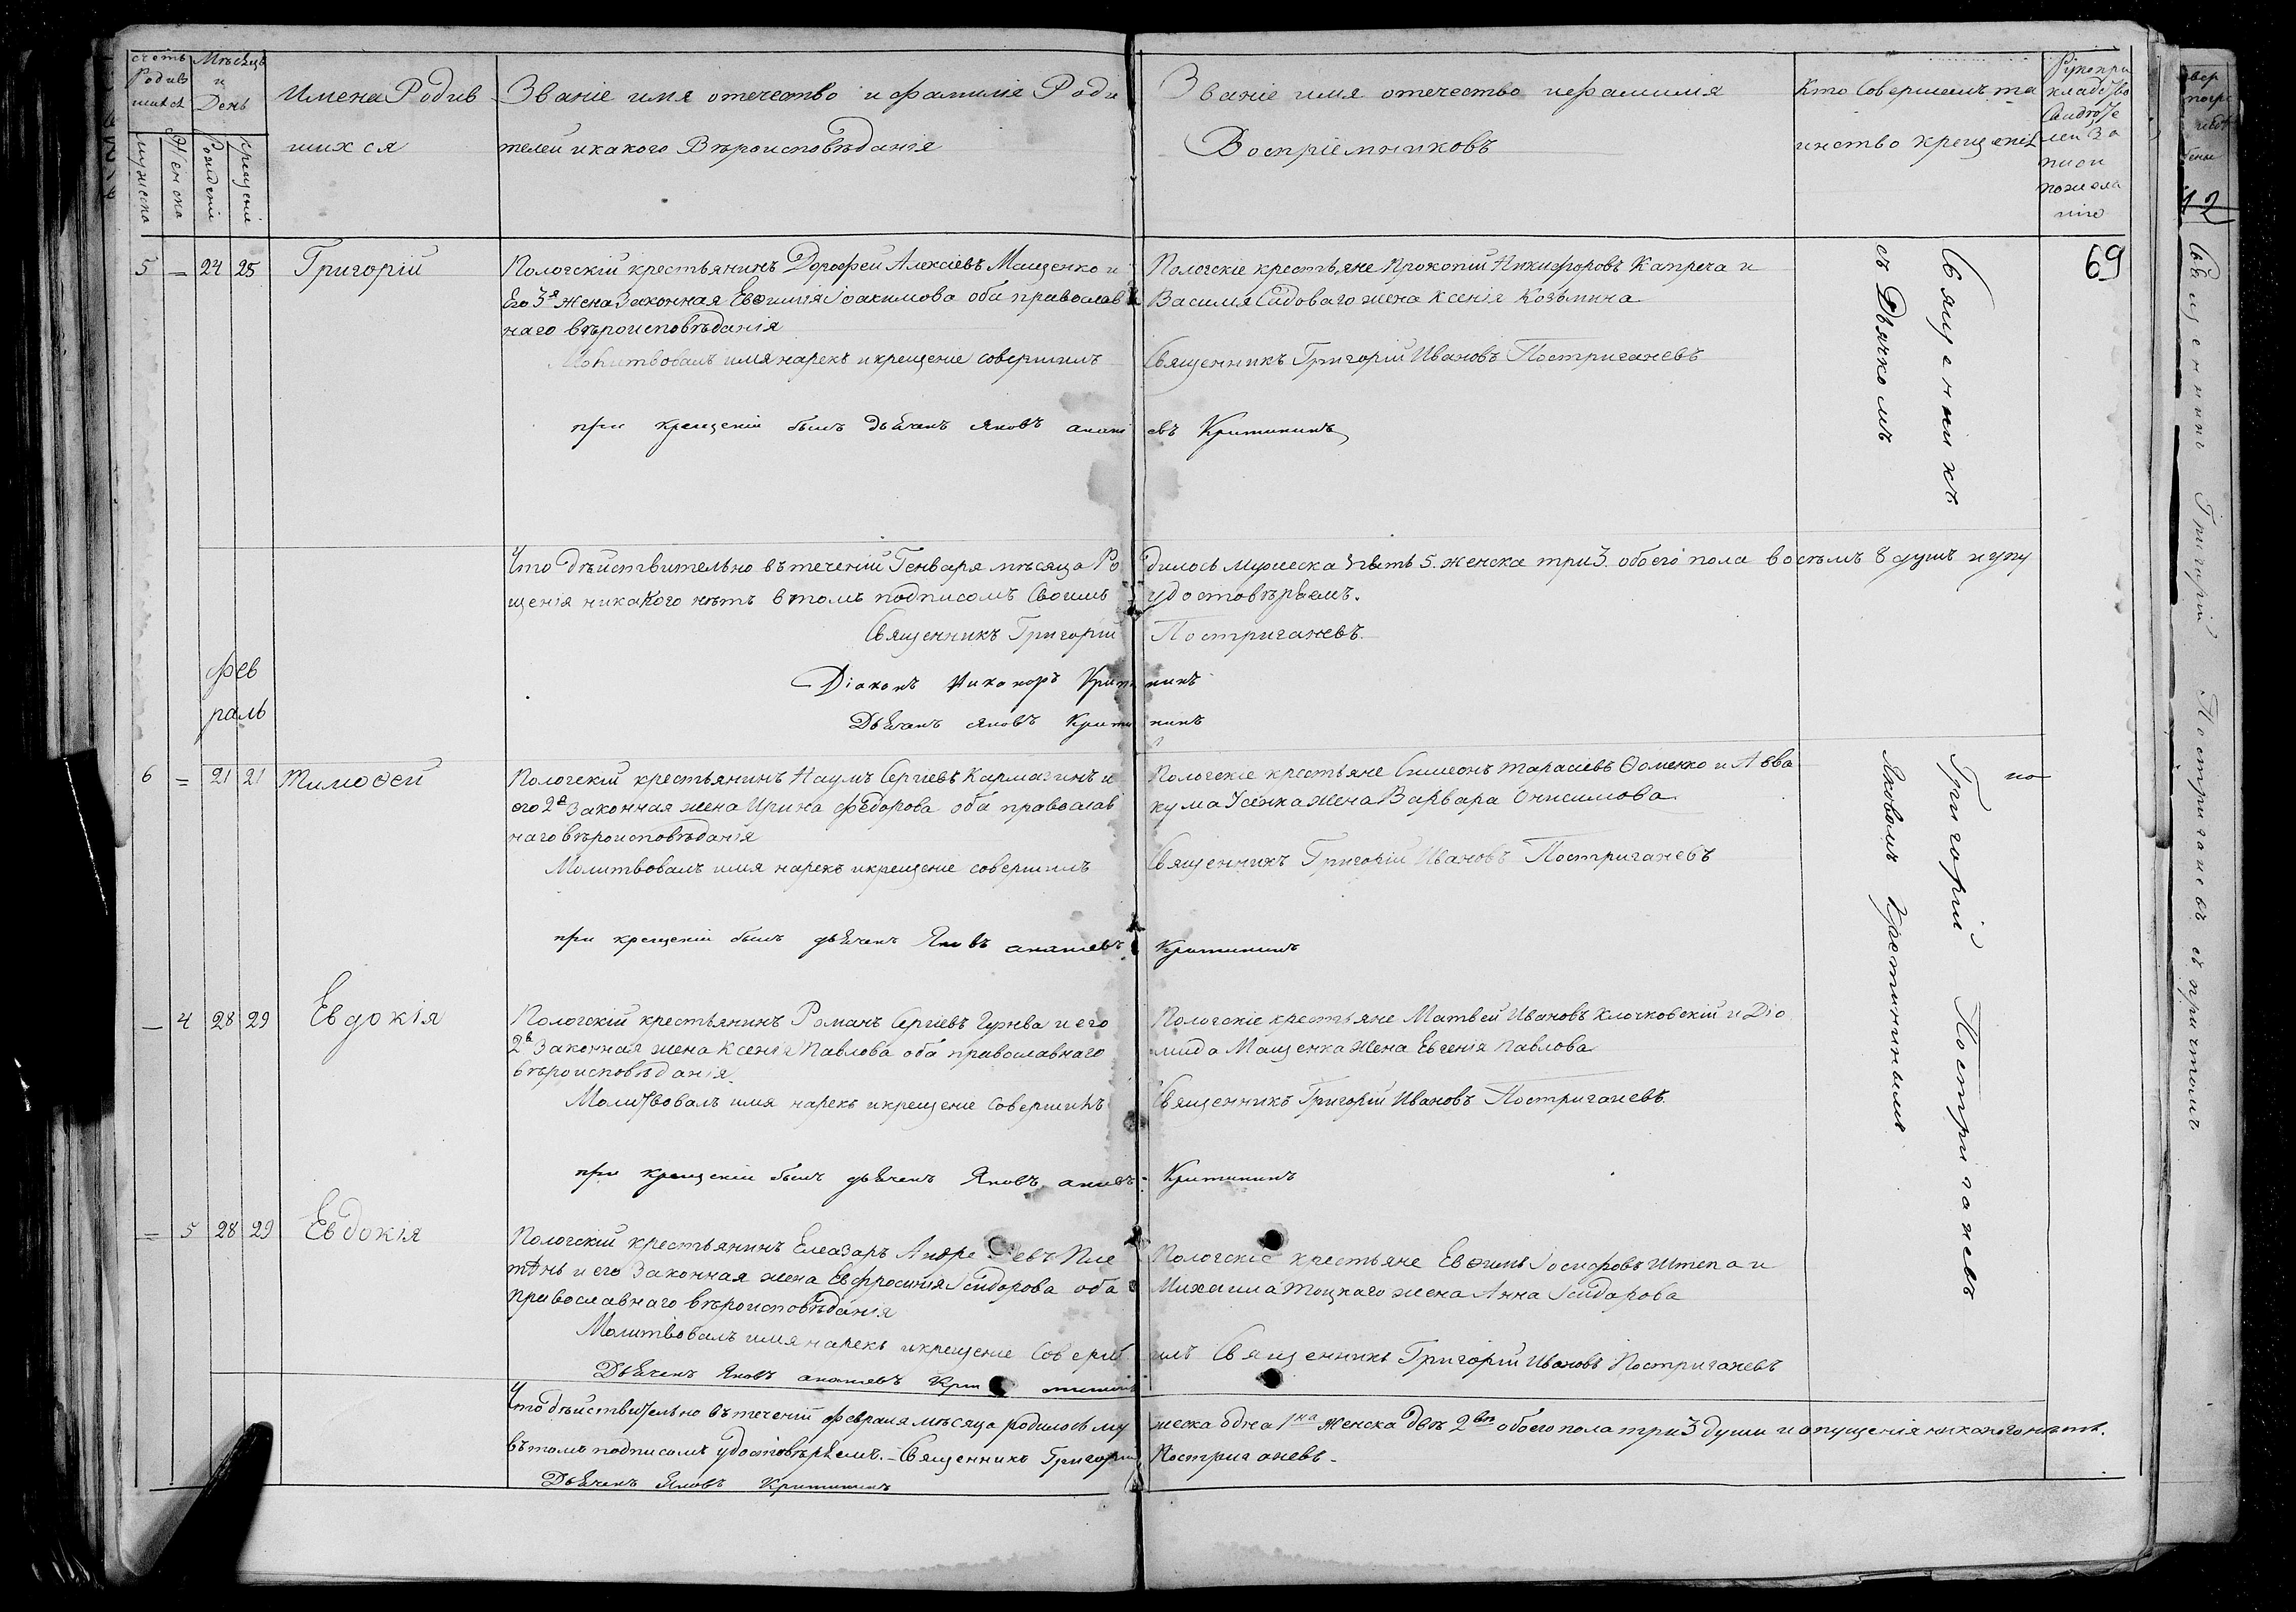 счетъ Родив шихся
Мѣсяцъ и День
Имена Родив
шихся
Званіе имя отечество и фамилія Роди
телей и какого Вѣроисповѣданія
Званіе имя отечество и фамилия
Воспріемниковъ
Кто Совершалъ та
инство крещенія
Рукопри
кладство
Свидѣте
лей за
писи
по жела
нію
мужеска
Женска
Рожденія
Крещенія
69
5 – 24 25 Григорій
Пологскій крестьянинъ Дорофей Алексіевъ Мащенко и
Его 3я жена Законная Евѳимія Іоакимова оба православ
наго вѣроисповѣданія
Молитвовалъ имя нарекъ и крещеніе совершилъ
при крещеніи былъ дьячекъ Яковъ анані
Пологскіе крестьяне Прокопій Никифоровъ Капреча и
Василия Садоваго жена Ксенія Козьмина
Священникъ Григорій Ивановъ Постриганевъ
евъ Критининъ
Священникъ
съ Дьячкомъ
Что дѣйствительно въ теченіи Генваря мѣсяца Ро
дилось Мужеска пять 5. женска три 3. обоего пола восемъ 8 душъ и упу
щенія никакого нѣтъ в томъ подписомъ Своимъ
удостовѣряемъ.
Священникъ Григорій Постриганевъ
Діаконъ Никаноръ Критининъ
Дьячекъ Яковъ Критининъ
фев
раль
6 = 21 21 Тимоѳей
Пологскій крестьянинъ Наумъ Сергіевъ Кармазинъ и
его 2я Законная жена Ирина Федорова оба православ
наго вѣроисповѣданія
Молитвовалъ имя нарекъ и крещеніе совершилъ
при крещеніи былъ дьячекъ Яковъ ананіевъ
Пологскіе крестьяне Симеонъ Тарасіевъ Ѳоменко и Авва
кума Усенка жена Варвара Онисимова
Священникъ Григорій Ивановъ Постриганевъ
Критининъ
Григорій Постриганевъ
Яковомъ Критининымъ
– 4 28 29 Евдокія
Пологскій крестьянинъ Романъ Сергіевъ и его
2я Законная жена Ксенія Павлова оба православнаго
вѣроисповѣданія
Молитвовалъ имя нарекъ и крещеніе Совершилъ
при крещеніи былъ дьячекъ Яковъ
Пологскіе крестьяне Матвей Ивановъ Клочковскій и Діо
мида Мащенка жена Евгенія Павлова
Священникъ Григорій Ивановъ Постриганевъ
Критининъ
= 5 28 29 Евдокія
Пологскій крестьянинъ Елеазаръ Андреевъ Пле
тѣнь и его Законная жена Евфросинія Ісидорова оба
православнаго вѣроисповѣданія
Молитвовалъ имя нарекъ и крещеніе Соверш
Дьячекъ Яковъ ананіевъ Критининъ
Пологскіе крестьяне Евѳимъ Іосифовъ Штепа и
Михаила Тоцкаго жена Анна Ісидорова
илъ Священникъ Григорій Ивановъ Постриганевъ
Что дѣйствительно въ теченіи февраля мѣсяца родилось му
жеска одна 1на Женска двѣ 2вѣ обоего пола три 3 души и опущенія никакого нѣтъ.
въ томъ подписомъ удостовѣряемъ. – Священникъ Григорій Постриганевъ.
Дьячекъ Яковъ Критининъ
12
Священникъ Григорій Постриганевъ съ причтомъ